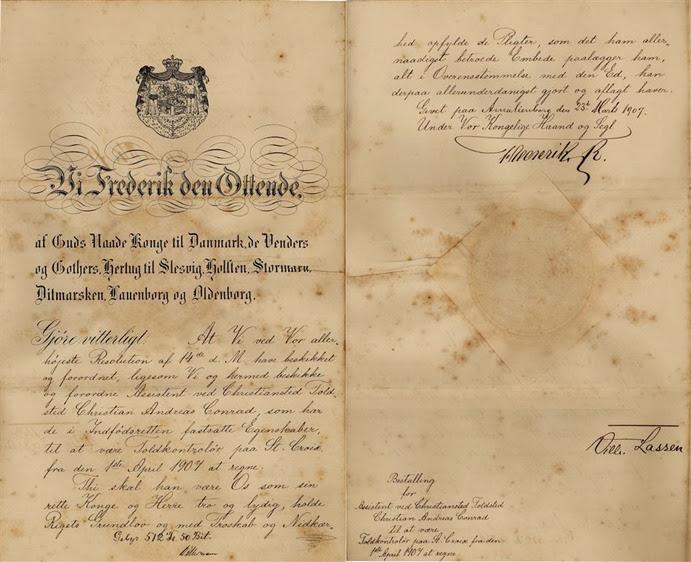 Vi Frederik den Ottende,
af Guds Naade Konge til Danmark, de Venders
og Gothers, Hertug til Slesvig, Holsten, Stormarn,
Ditmarsken, Lauenborg og Oldenborg,
Gjøre vitterligt: At Vi ved Vor aller-
højeste Resolution af 14de d. M. have beskikket
og forordnet, ligesom Vi og hermed beskikke
og forordne Assistent ved Christiansted Told-
sted Christian Andreas Conrad, som har
de i Indfødsretten fastsatte Egenskaber,
til at være Toldkontrolør paa St. Croix
fra den 1ste April 1907 at regne.
Thi skal han være Os som sin
rette Konge og Herre tro og lydig, holde
Rigets Grundlov og med Troskab og Nidkær-
Gebyr 512 Kr. 50 Bit.
hed opfylde de Pligter, som det ham aller-
naadigst betroede Embede paalægger ham,
alt i Overensstemmelse med den Ed, han
derpaa allerunderdanigst gjort og aflagt haver.
Givet paa Amalienborg den 23de Marts 1907.
Under Vor Kongelige Haand og Segl
Frederik R.
Vilh. Lassen
Bestalling
for
Assistent ved Christiansted Toldsted
Christian Andreas Conrad
til at være
Toldkontrolør paa St. Croix fra den
1ste April 1907 at regne